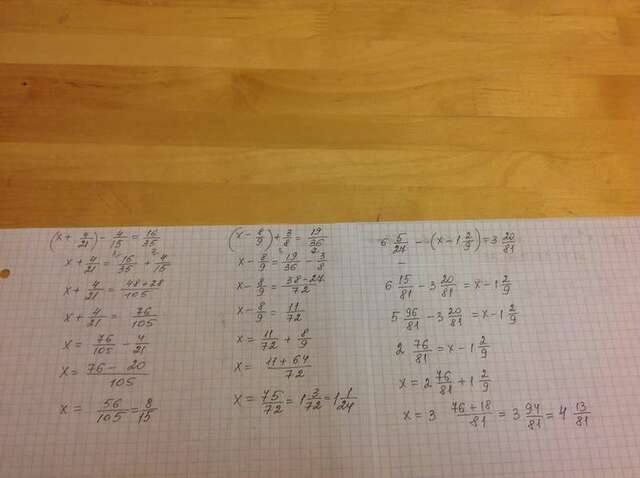 (x + 4/21) - 4/15 = 16/35
x + 4/21 = 16/35 + 4/15
x + 4/21 = 48+28/105
x + 4/21 = 76/105
x = 76/105 - 4/21
x = 76-20/105
x = 56/105 = 8/15
(x - 8/9) + 3/8 = 19/36
x - 8/9 = 19/36 - 3/8
x - 8/9 = 38-27/72
x - 8/9 = 11/72
x = 11/72 + 8/9
x = 11+64/72
x = 75/72 = 1 3/72 = 1 1/24
6 5/27 - (x - 1 2/9) = 3 20/81
6 15/81 - 3 20/81 = x - 1 2/9
5 96/81 - 3 20/81 = x - 1 2/9
2 76/81 = x - 1 2/9
x = 2 76/81 + 1 2/9
x = 3 76+18/81 = 3 94/81 = 4 13/81